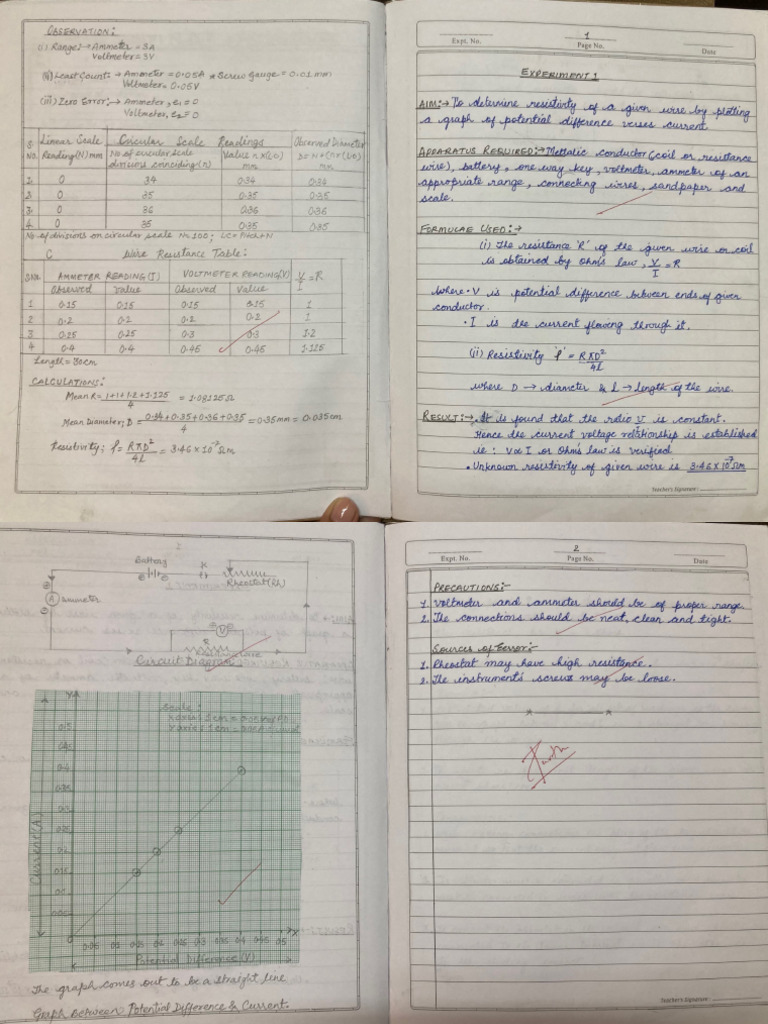 OBSERVATION:
(i) Range:→ Ammeter = 3A
Voltmeter = 3V
(ii) Least Count: → Ammeter = 0.05A * Screw Gauge = 0.01 mm
Voltmeter = 0.05V
(iii) Zero Error:→ Ammeter, e₁ = 0
Voltmeter, e₂ = 0
S. No. Linear Scale Reading(N)mm Circular Scale Readings Observed Diameter
No of circular scale divisions coinciding(n) Value n×(LC) mm
1. 0 34 0.34 0.34
2. 0 35 0.35 0.35
3. 0 36 0.36 0.36
4. 0 35 0.35 0.35
No of divisions on circular scale N=100; LC=Pitch÷N
Wire Resistance Table:
S.No. AMMETER READING(I) VOLTMETER READING(V) V/I = R
Observed Value Observed Value
1 0.15 0.15 0.15 0.15 1
2 0.2 0.2 0.2 0.2 1
3 0.25 0.25 0.3 0.3 1.2
4 0.4 0.4 0.45 0.45 1.125
Length = 30cm
CALCULATIONS:
Mean R = 1+1+1.2+1.125/4 = 1.08125Ω
Mean Diameter, D = 0.34+0.35+0.36+0.35/4 = 0.35mm = 0.035cm
Resistivity; ρ = RπD²/4l = 3.46×10⁻⁷ Ωm
1
Expt. No. Page No. Date
EXPERIMENT 1
AIM:→ To determine resistivity of a given wire by plotting
a graph of potential difference verses current.
APPARATUS REQUIRED:→ Mettalic conductor (coil or resistance
wire), battery, one way key, voltmeter, ammeter of an
appropriate range, connecking wires, sandpaper and
scale.
FORMULAE USED:→
(i) The resistance 'R' of the given wire or coil
is obtained by Ohm's law, V/I = R
where • V is potential difference between ends of given
conductor.
• I is the current flowing through it.
(ii) Resistivity 'ρ' = RπD²/4l
where D → diameter & l → length of the wire.
RESULT:→ • It is found that the ratio V/I is constant.
Hence the current voltage relationship is established
ie : V∝I or Ohm's law is verified.
• Unknown resistivity of given wire is 3.46×10⁻⁷ Ωm
Teacher's Signature :
Battery K
Rheostat(Rh)
A ammeter
V
R
wire
Circuit Diagram
Y
Scale:
X axis: 1cm =
Y axis: 1cm =
0.5
0.45
0.4
0.35
0.3
0.25
0.2
0.15
0.1
0.05
Current(A)
0.05 0.1 0.15 0.2 0.25 0.3 0.35 0.4 0.45 0.5 X
Potential Difference(V)
The graph comes out to be a straight line
Graph Between Potential Difference & Current.
2
Expt. No. Page No. Date
PRECAUTIONS:-
1. Voltmeter and ammeter should be of proper range.
2. The connections should be neat, clean and tight.
Sources of Error:-
1. Rheostat may have high resistance.
2. The instrument's screws may be loose.
Teacher's Signature :